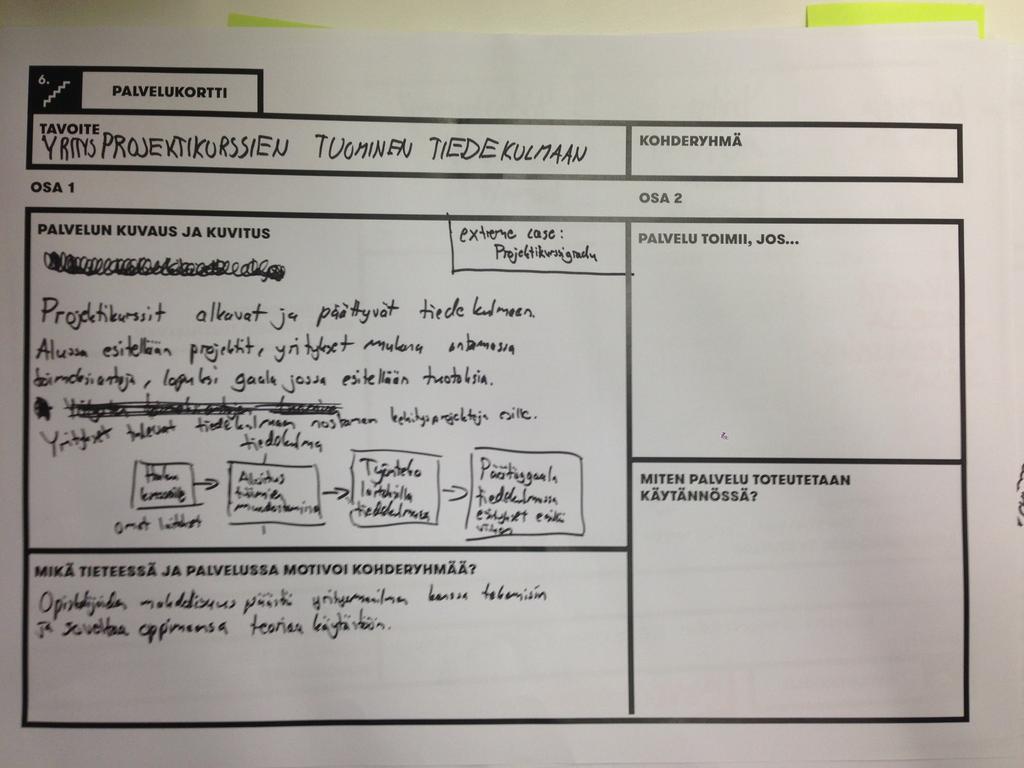 6.
PALVELUKORTTI
TAVOITE
YRITYSPROJEKTIKURSSIEN TUOMINEN TIEDEKULMAAN
KOHDERYHMÄ
OSA 1
OSA 2
PALVELUN KUVAUS JA KUVITUS
extreme case:
Projektikurssigradu
Projektikurssit alkavat ja päättyvät tiedekulmaan.
Alussa esitellään projektit, yritykset mukana antamassa
toimeksiantoja, lopuksi gaala jossa esitellään tuotoksia.
Yritykset tulevat tiedekulmaan nostamaan kehitysprojekteja esille.
tiedekulma
Haku
kurssille
omat laitokset
Aloitus
tiimien
muodostaminen
Työnteko
laitoksilla
tiedekulmassa
Päätösgaala
tiedekulmassa
esitykset
PALVELU TOIMII, JOS...
MIKÄ TIETEESSÄ JA PALVELUSSA MOTIVOI KOHDERYHMÄÄ?
Opiskelijoiden mahdollisuus päästä yritysmaailman kanssa tekemisiin
ja soveltaa oppimaansa teoriaa käytäntöön.
MITEN PALVELU TOTEUTETAAN
KÄYTÄNNÖSSÄ?